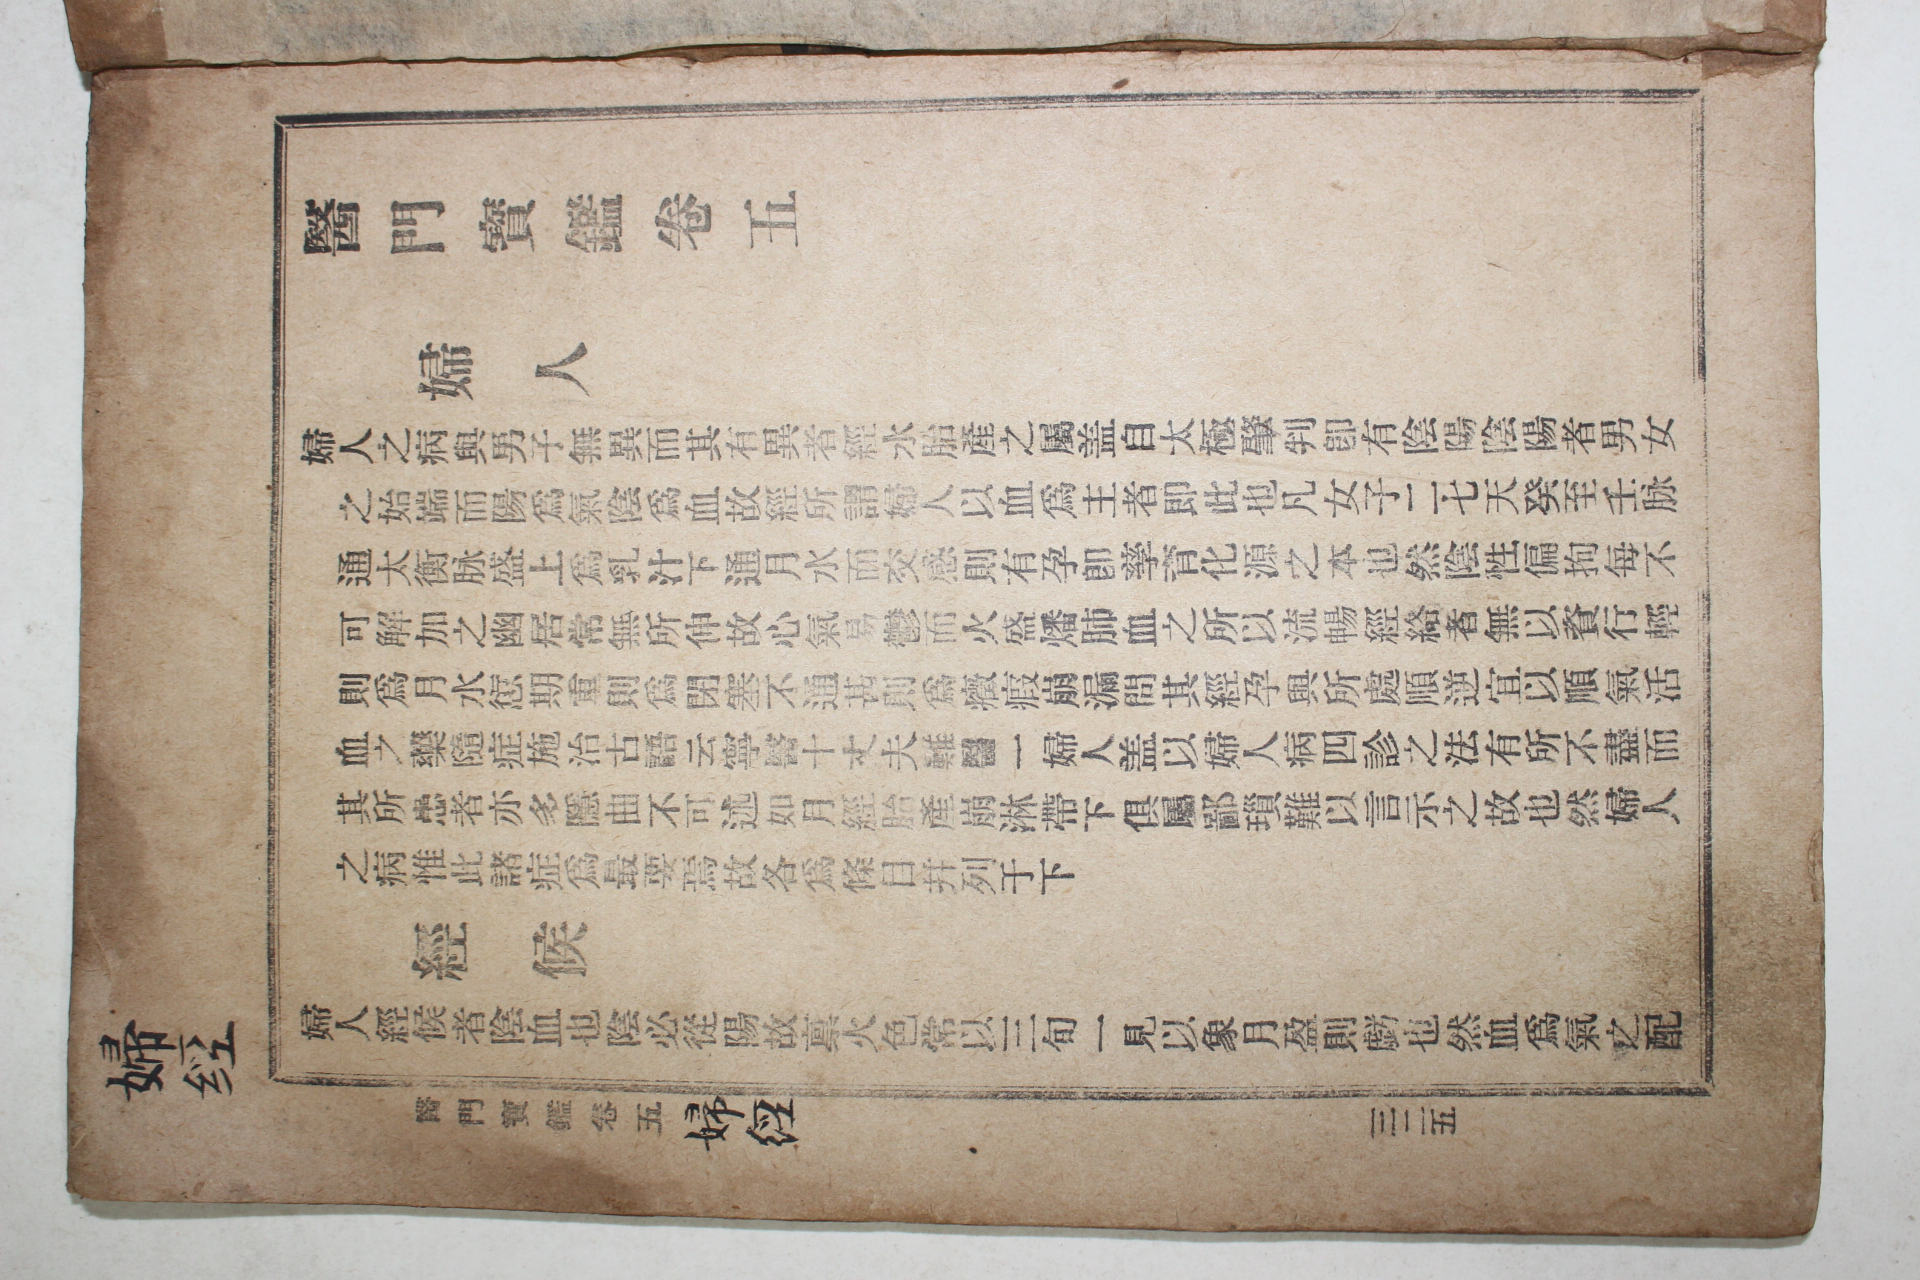 醫門寶鑑卷五
婦人
婦人之病與男子無異而其有異者經水胎產之屬盖自太極肇判卽有陰陽陰陽者男女
之始端而陽爲氣陰爲血故經所謂婦人以血爲主者卽此也凡女子二七天癸至壬脉
通太衝脉盛上爲乳汁下通月水而交感則有孕卽孳育化源之本也然陰性偏拘每不
可解加之幽居常無所伸故心氣易鬱而火盛燔肺血之所以流暢經絡者無以資行輕
則爲月水愆期重則爲閉塞不通甚則爲癥瘕崩漏問其經孕與所處順逆宜以順氣活
血之藥隨症施治古語云寧醫十丈夫難醫一婦人盖以婦人病四診之法有所不盡而
其所患者亦多隱曲不可述如月經胎產崩淋帶下俱屬鄙瑣難以言示之故也然婦人
之病惟此諸症爲最要焉故各爲條目幷列于下
經候
婦人經候者陰血也陰必從陽故禀火色常以三旬一見以象月盈則虧也然血爲氣之配
醫門寶鑑卷五
婦經
三二五
婦經